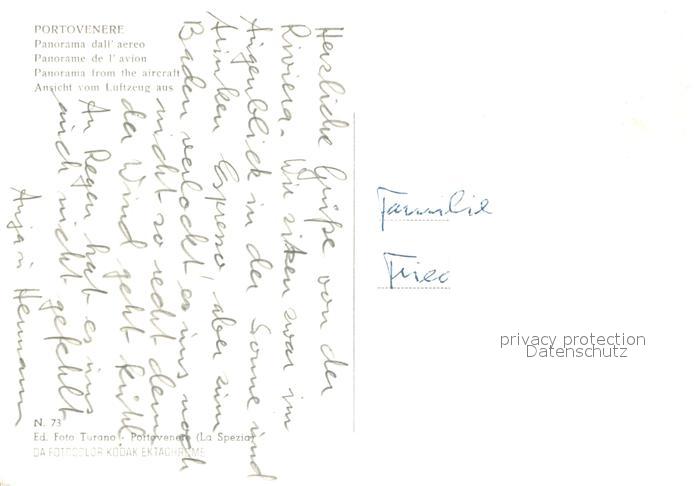 PORTOVENERE
Panorama dall'aereo
Panorame de l'avion
Panorama from the aircraft
Ansicht vom Luftzeug aus
Herzliche Grüße von der
Riviera. Wir sitzen zwar im
Augenblick in der Sonne und
trinken Espresso, aber zum
Baden verlockt es uns noch
nicht so recht, denn
der Wind geht kühl.
An Regen hat es uns
auch nicht gefehlt
Anja u. Hermann
N. 73
Ed. Foto Turano - Portovenere (La Spezia)
DA FOTOCOLOR KODAK EKTACHROME
Familie
Fried
privacy protection
Datenschutz